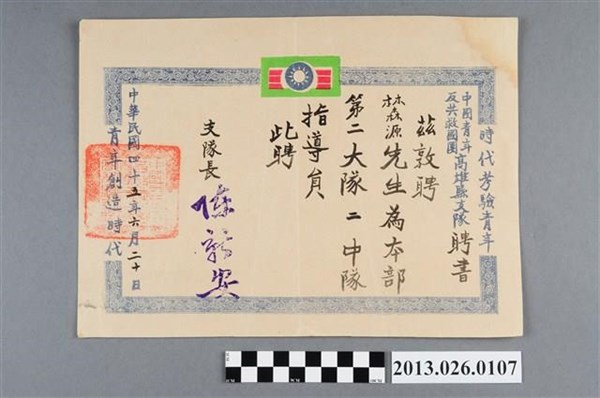 時代考驗青年
中國青年反共救國團高雄縣支隊聘書
茲敦聘
林森源先生為本部
第二大隊二中隊
指導員
此聘
支隊長
中華民國四十五年六月二十日
青年創造時代
2013.026.0107